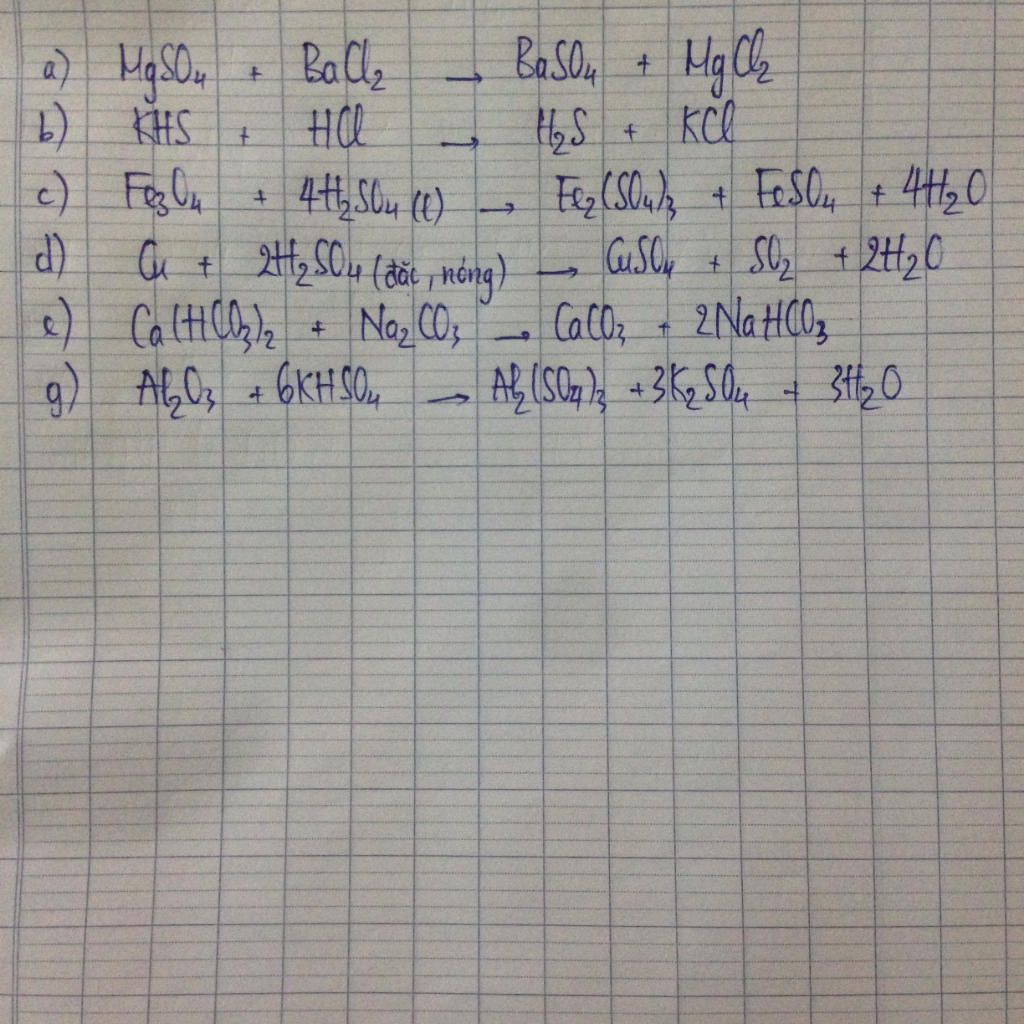 a) MgSO₄ + BaCl₂ → BaSO₄ + MgCl₂
b) KHS + HCl → H₂S + KCl
c) Fe₃O₄ + 4H₂SO₄ (l) → Fe₂(SO₄)₃ + FeSO₄ + 4H₂O
d) Cu + 2H₂SO₄ (đặc, nóng) → CuSO₄ + SO₂ + 2H₂O
e) Ca(HCO₃)₂ + Na₂CO₃ → CaCO₃ + 2NaHCO₃
g) Al₂O₃ + 6KHSO₄ → Al₂(SO₄)₃ + 3K₂SO₄ + 3H₂O